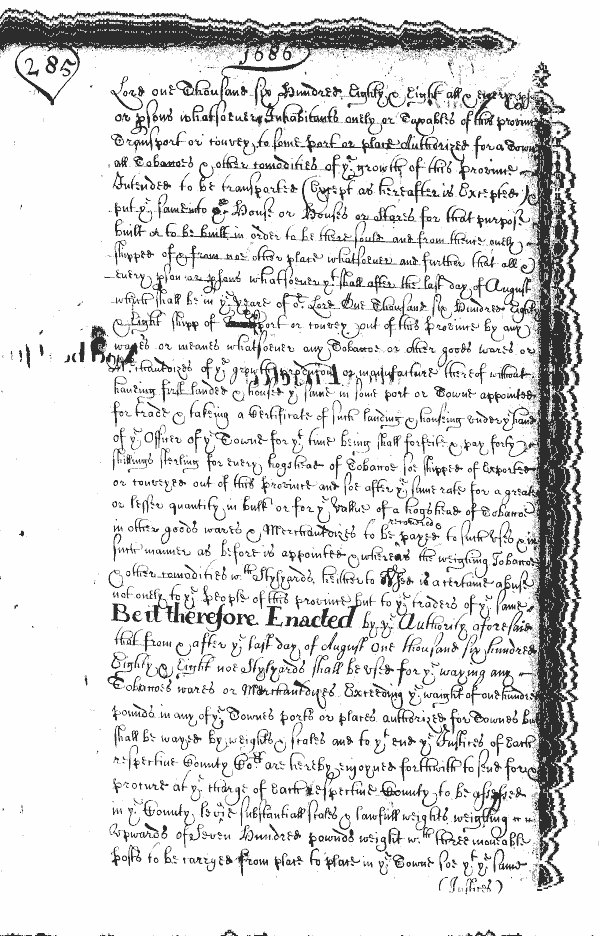 285
1686
Lord one Thousand six Hundred Eighty & Eight all & every
or psons whatsoever Inhabitants onely or Tayables of this province
Transport or convey to some port or place Authorized for a Town
all Tobaccoes & other comodities of ye growth of this Province
Intended to be transported (Except as hereafter is Excepted)
put ye same into House or Houses or Stores for that purpose
built or to be built in order to be there sould and from thence onely
shipped of & from noe other place whatsoever and further that all
every pson or psons whatsoever yt shall after the last day of August
which shall be in ye yeare of or Lord One Thousand six Hundred Eighty
& Eight shipp of port or convey out of this Province by any
wayes or meanes whatsoever any Tobaccoe or other goods wares or
Merchandizes of ye growth or manufacture thereof without
haveing first landed & housed ye same in some port or Towne appointed
for trade & takeing a Certificate of such landing & houseing under ye hand
of ye Officer of ye Towne for ye time being shall forfeite & pay forty
shillings sterling for every hogshead of Tobaccoe soe shipped of Exported
or conveyed out of this Province and soe after ye same rate for a greater
or lesser quantity in bulk or for ye value of a hogshead of Tobaccoe
in other goods wares & Merchandizes to be payed to such uses & in
such manner as before is appointed & whereas the weighing Tobaccoe
& other comodities wth Stylyards hitherto used is a certaine abuse
not onely to ye people of this province but to ye traders of ye same
Be it therefore Enacted by ye Authority aforesaid
that from & after ye last day of August One thousand six hundred
Eighty & Eight noe Stylyards shall be used for ye waying any
Tobaccoes wares or Merchandizes Exceeding ye waight of one hundred
pounds in any of ye Townes ports or places authorized for Townes but
shall be wayed by weights & scales and to yt end ye Justices of Each
respective County Cort are hereby enjoyned forthwith to send for &
procure at ye charge of Each respective County to be assessed
in ye County levie substantiall scales & lawfull weights weighing
Upwards of Seven Hundred pounds weight wth three moveable
posts to be carryed from place to place in ye Towne soe yt ye same
(Justices)